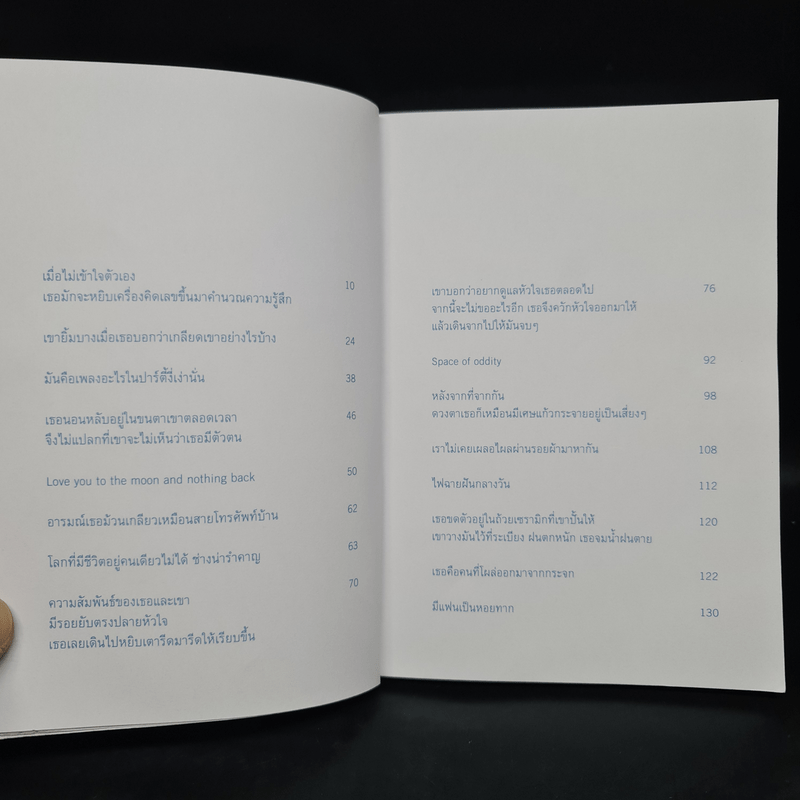 เมื่อไม่เข้าใจตัวเอง
เธอมักจะหยิบเครื่องคิดเลขขึ้นมาคำนวณความรู้สึก 10
เขายิ้มบางเมื่อเธอบอกว่าเกลียดเขาอย่างไรบ้าง 24
มันคือเพลงอะไรในปาร์ตี้งี่เง่านั่น 38
เธอนอนหลับอยู่ในขนตาเขาตลอดเวลา 46
จึงไม่แปลกที่เขาจะไม่เห็นว่าเธอมีตัวตน
Love you to the moon and nothing back 50
อารมณ์เธอม้วนเกลียวเหมือนสายโทรศัพท์บ้าน 62
โลกที่มีชีวิตอยู่คนเดียวไม่ได้ ช่างน่ารำคาญ 63
ความสัมพันธ์ของเธอและเขา 70
มีรอยยับตรงปลายหัวใจ
เธอเลยเดินไปหยิบเตารีดมารีดให้เรียบขึ้น
เขาบอกว่าอยากดูแลหัวใจเธอตลอดไป 76
จากนี้จะไม่ขออะไรอีก เธอจึงควักหัวใจออกมาให้
แล้วเดินจากไปให้มันจบๆ
Space of oddity 92
หลังจากที่จากกัน 98
ดวงตาเธอก็เหมือนมีเศษแก้วกระจายอยู่เป็นเสี่ยงๆ
เราไม่เคยเผลอไผลผ่านรอยผ้ามาหากัน 108
ไฟฉายฝันกลางวัน 112
เธอขดตัวอยู่ในถ้วยเซรามิกที่เขาปั้นให้ 120
เขาวางมันไว้ที่ระเบียง ฝนตกหนัก เธอจมน้ำฝนตาย
เธอคือคนที่โผล่ออกมาจากกระจก 122
มีแฟนเป็นหอยทาก 130